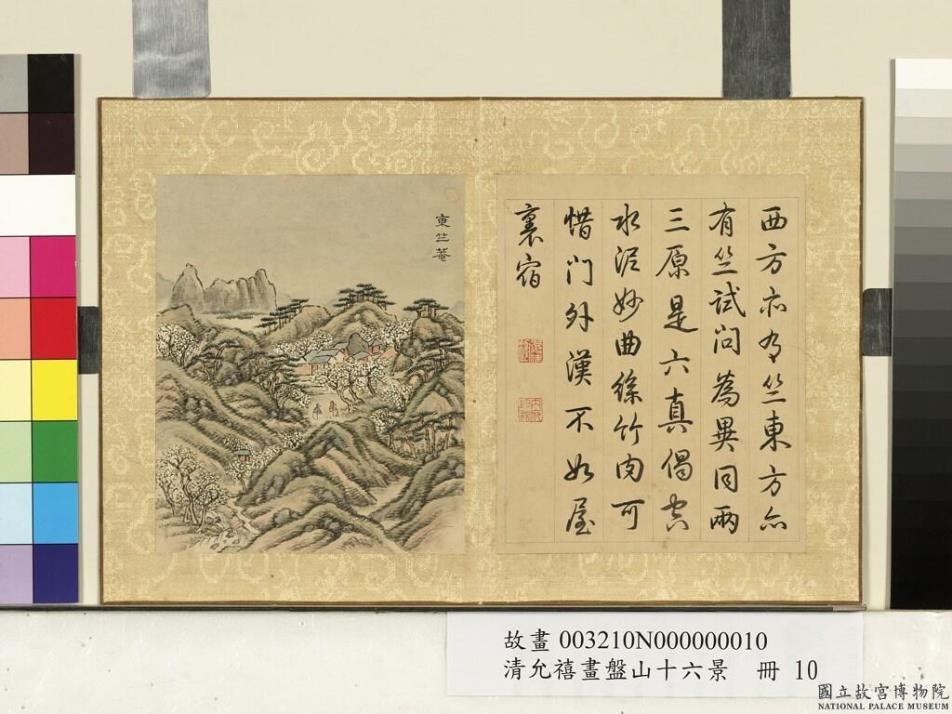 東竺菴
西方亦有竺東方亦
有竺試問為異同兩
三原是六真偈
水泥妙曲絲竹肉可
惜门外漢不如屋
裏宿
故畫 003210N000000010
清允禧畫盤山十六景 冊 10
國立故宮博物院
NATIONAL PALACE MUSEUM